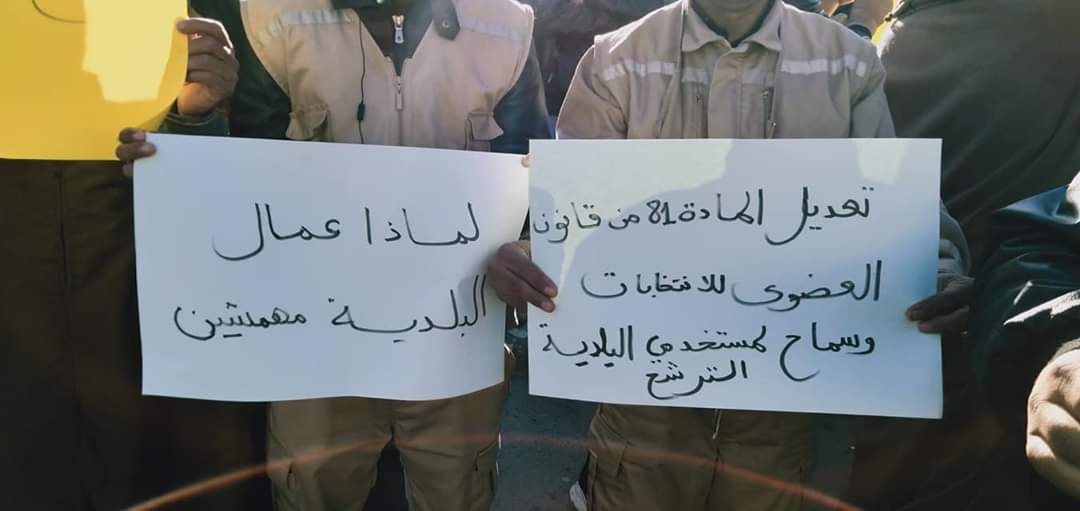 تعديل المادة 81 من قانون
العضوي للانتخابات
وسماح لمستخدمي البلدية
الترشح
لماذا عمال
البلدية مهمشين